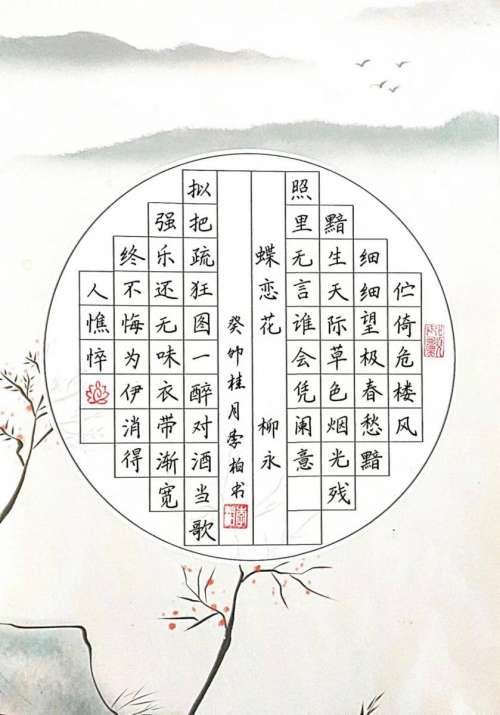 伫倚危楼风
细细望极春愁黯
黯生天际草色烟光残
照里无言谁会凭阑意
蝶恋花 柳永
癸卯桂月李柏书
拟把疏狂图一醉对酒当歌
强乐还无味衣带渐宽
终不悔为伊消得
人憔悴